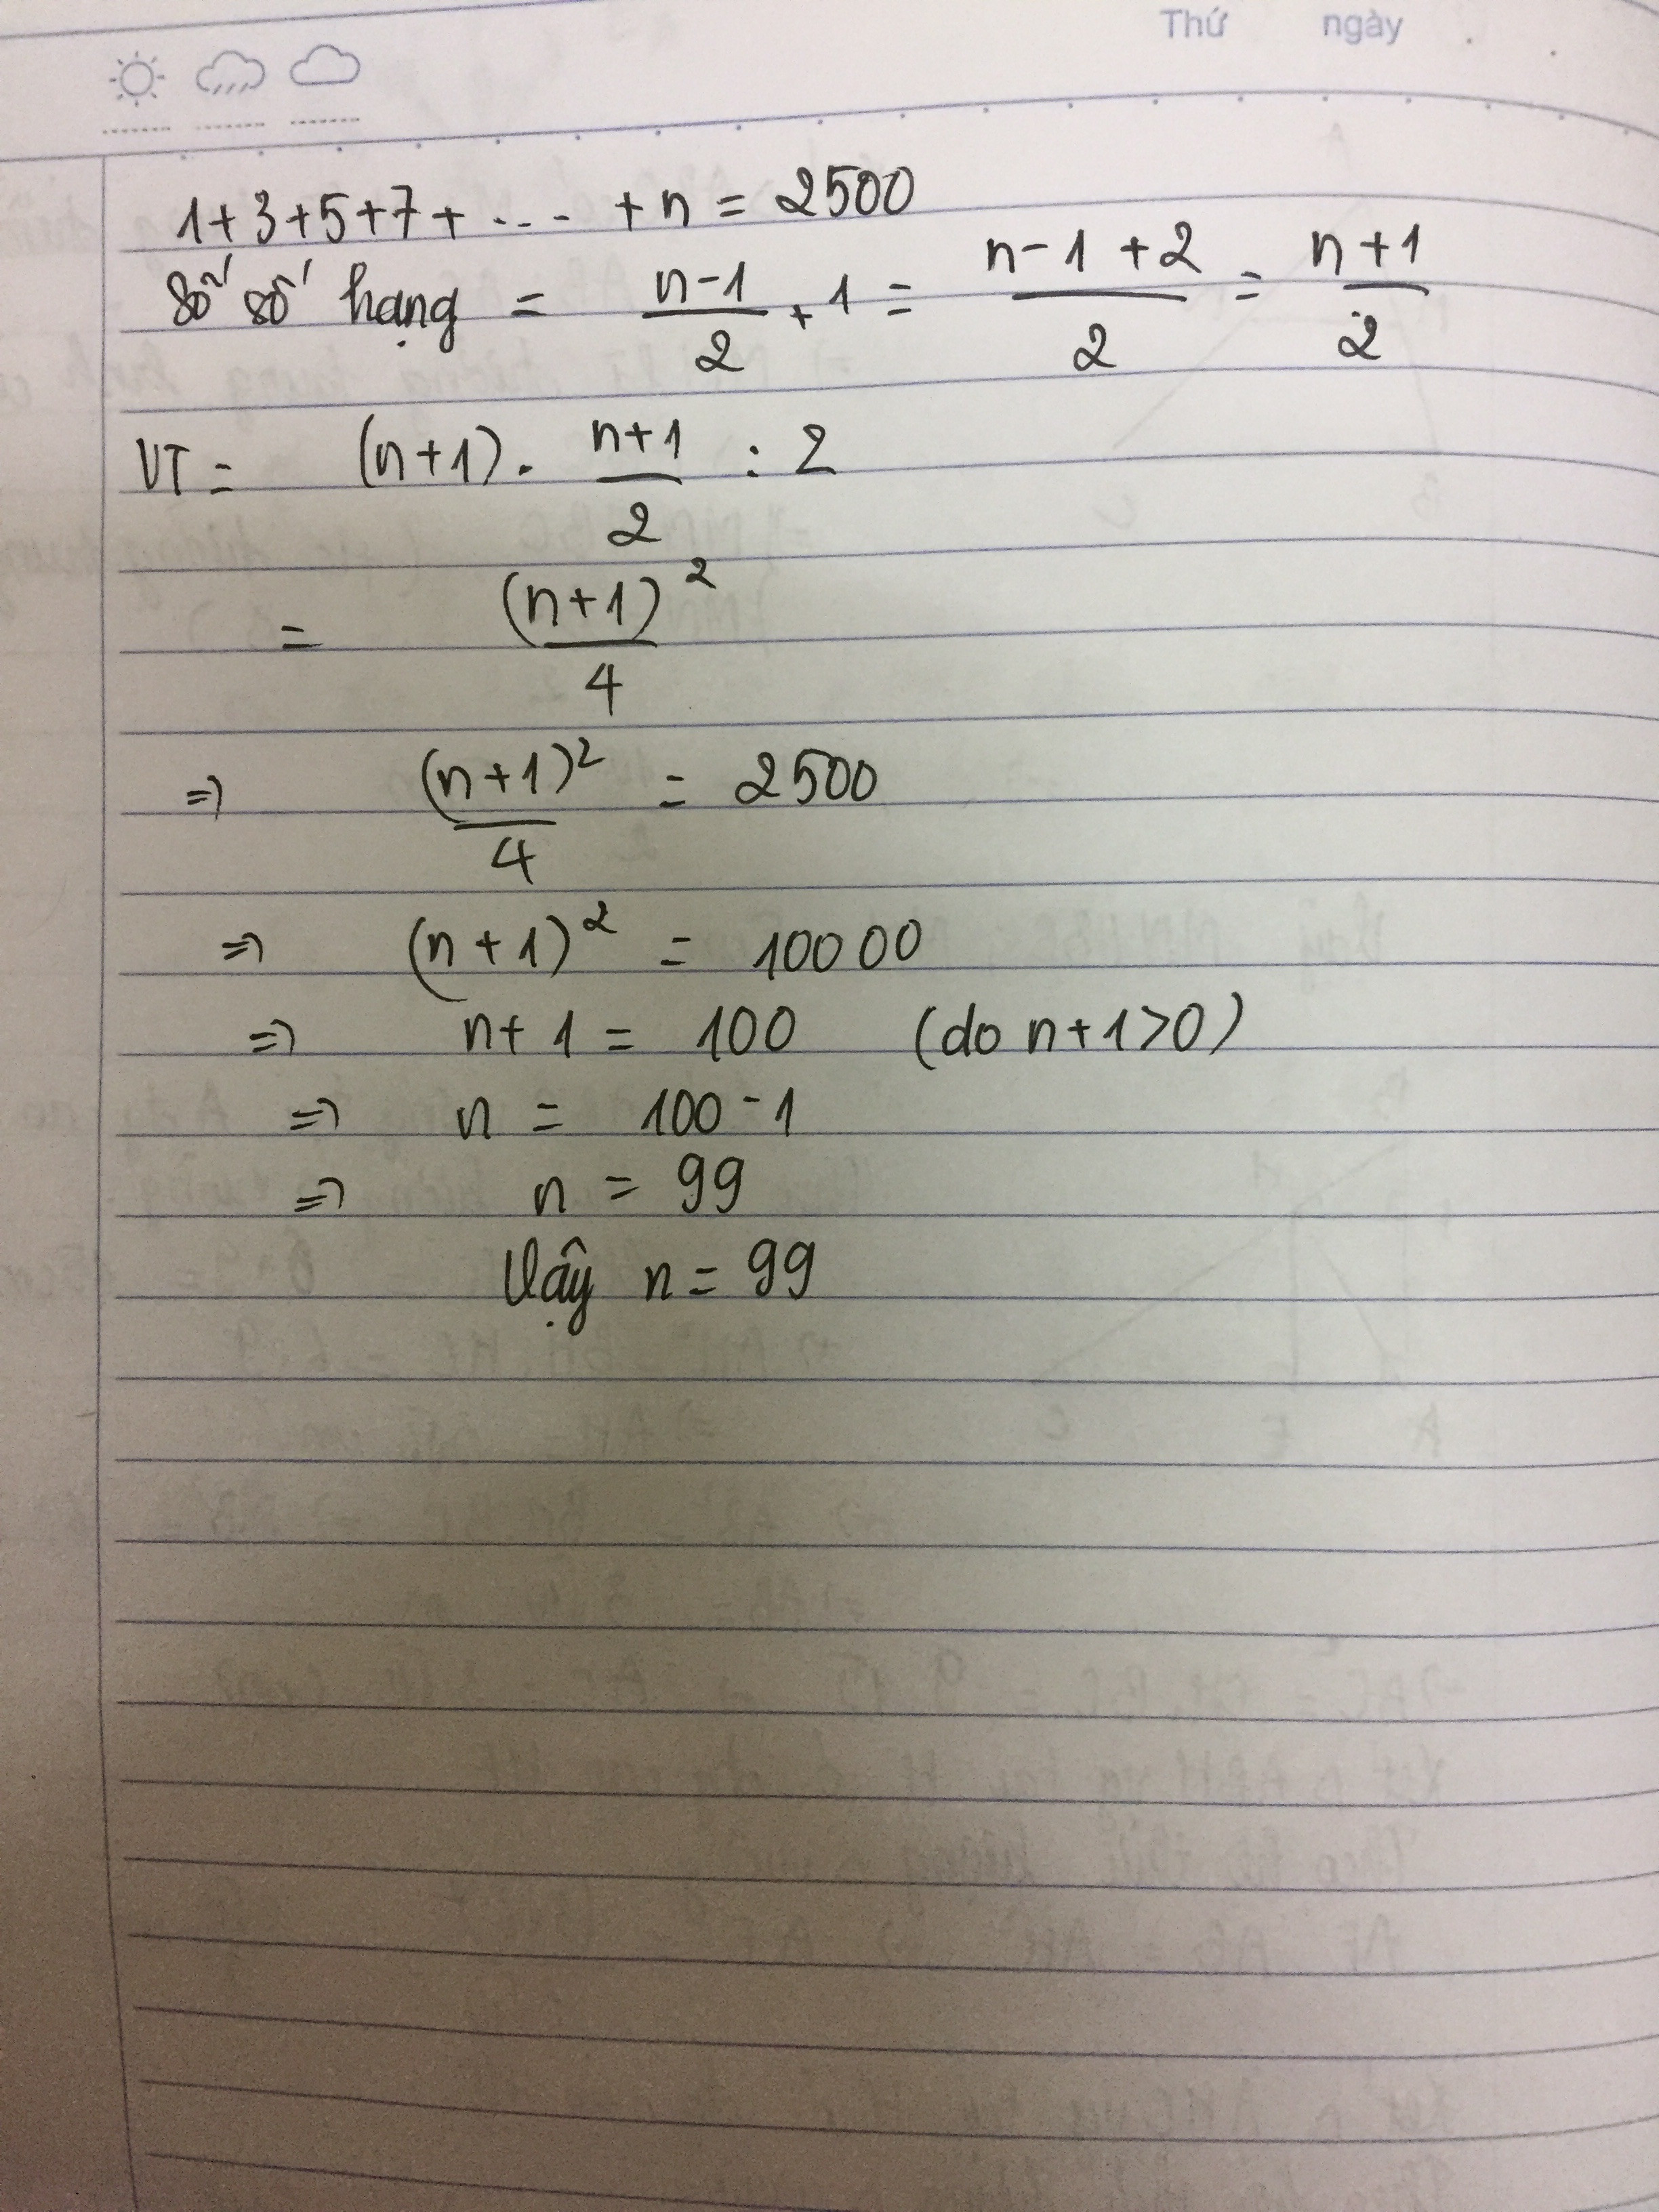 Thứ ngày
1+3+5+7+ ... + n = 2500
Số số hạng = \frac{n-1}{2} + 1 = \frac{n-1+2}{2} = \frac{n+1}{2}
VT = (n+1) . \frac{n+1}{2} : 2
= \frac{(n+1)^2}{4}
=> \frac{(n+1)^2}{4} = 2500
=> (n+1)^2 = 10000
=> n+1 = 100 (do n+1>0)
=> n = 100-1
=> n = 99
Vậy n = 99